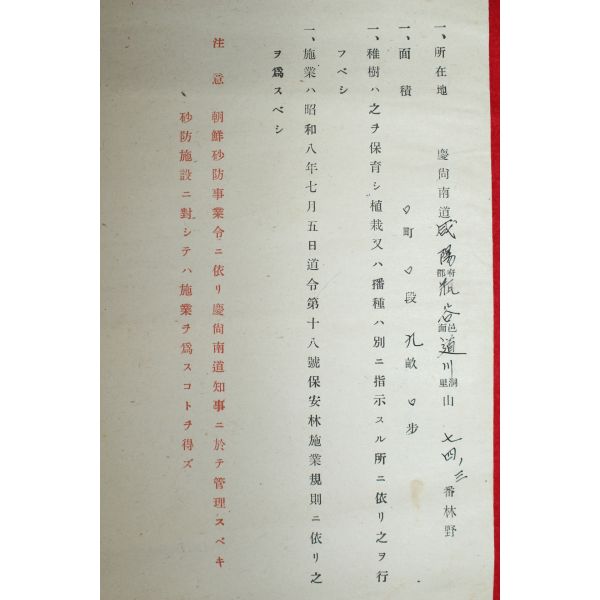 一、所在地 慶尙南道咸陽府郡甁谷邑面道川洞里山七四ノ三番林野
一、面積 ○町○段九畝○步
一、稚樹ハ之ヲ保育シ植栽又ハ播種ハ別ニ指示スル所ニ依リ之ヲ行
フベシ
一、施業ハ昭和八年七月五日道令第十八號保安林施業規則ニ依リ之
ヲ爲スベシ
注意 朝鮮砂防事業令ニ依リ慶尙南道知事ニ於テ管理スベキ
砂防施設ニ對シテハ施業ヲ爲スコトヲ得ズ